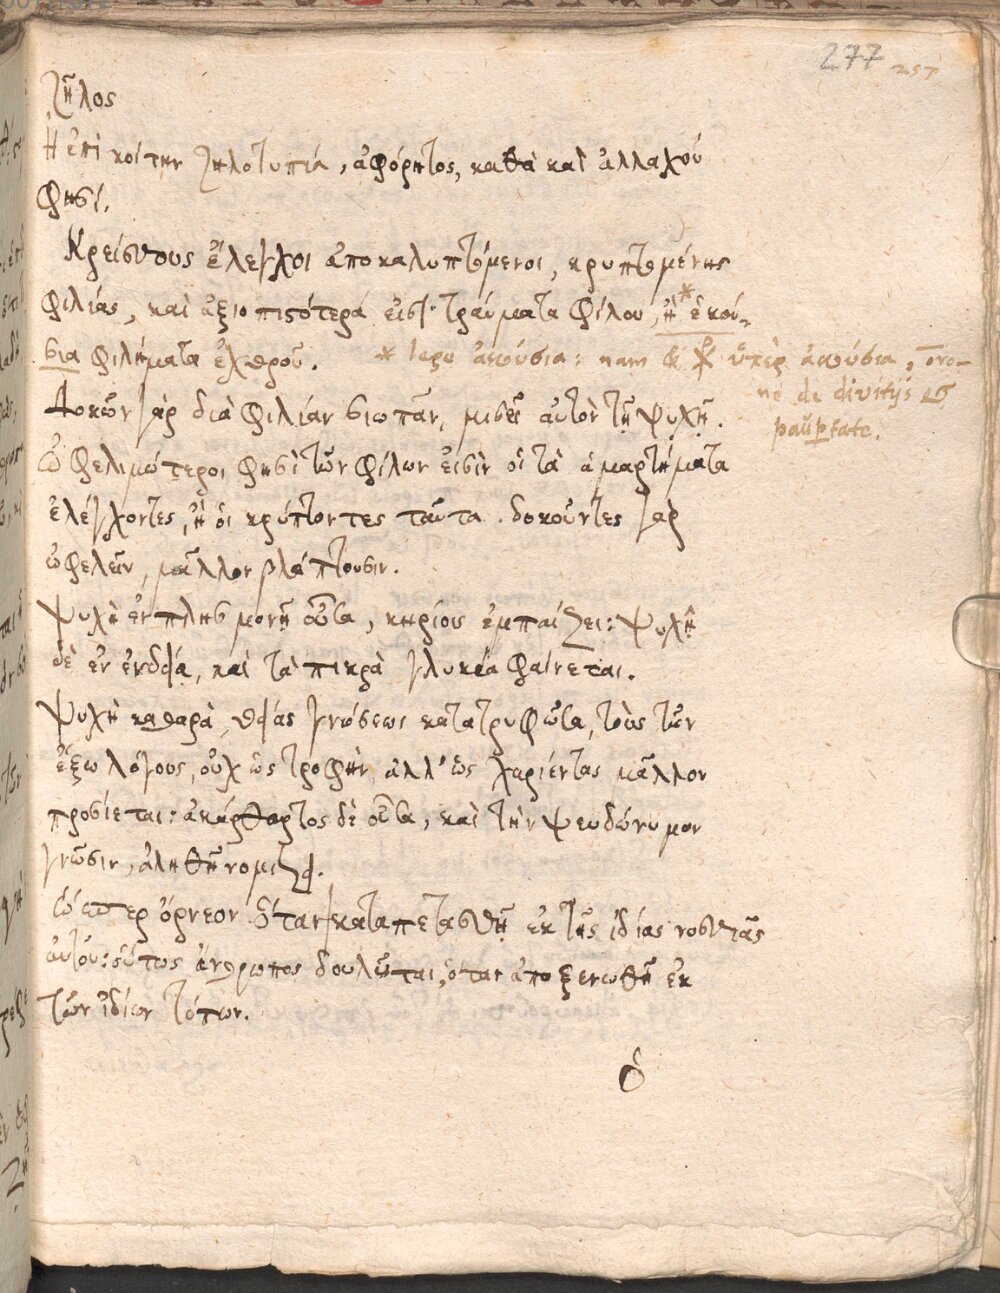 277 257
ζῆλος
Ἡ ἐπὶ κοίτην ζηλοτυπία, ἀφόρητος, καθὰ καὶ ἀλλαχοῦ
φησί.
Κρείσσους ἔλεγχοι ἀποκαλυπτόμενοι, κρυπτομένης
φιλίας, καὶ ἀξιοπιστότερά εἰσι τραύματα φίλου, ἢ * ἑκού-
σια φιλήματα ἐχθροῦ. * lego ἀκούσια: nam &
ὑπὲρ ἀκούσια,
de divitijs &
paupertate.
Δοκῶν γὰρ διὰ φιλίαν σιωπᾶν, μισεῖ αὐτὸν τῇ ψυχῇ.
ὠφελιμώτεροι φησὶ τῶν φίλων εἰσὶν οἱ τὰ ἁμαρτήματα
ἐλέγχοντες, ἢ οἱ κρύπτοντες ταῦτα. δοκοῦντες γὰρ
ὠφελεῖν, μᾶλλον βλάπτουσιν.
ψυχὴ ἐν πλησμονῇ οὖσα, κηρίοις ἐμπαίζει: ψυχῇ
δὲ ἐν ἐνδείᾳ, καὶ τὰ πικρὰ γλυκέα φαίνεται.
ψυχὴ καθαρὰ, θείας γνώσεως κατατρυφῶσα, τοὺς τῶν
ἔξω λόγους, οὐχ ὡς τροφὴν, ἀλλ' ὡς χαρίεντας μᾶλλον
προσίεται: ἀκάθαρτος δὲ οὖσα, καὶ τὴν ψευδώνυμον
γνῶσιν, ἀληθῆ νομίζει.
ὥσπερ ὄρνεον ὅταν καταπετασθῇ ἐκ τῆς ἰδίας νοσσιᾶς
αὐτοῦ: οὕτως ἄνθρωπος δουλοῦται, ὅταν ἀποξενωθῇ ἐκ
τῶν ἰδίων τόπων.
ὁ